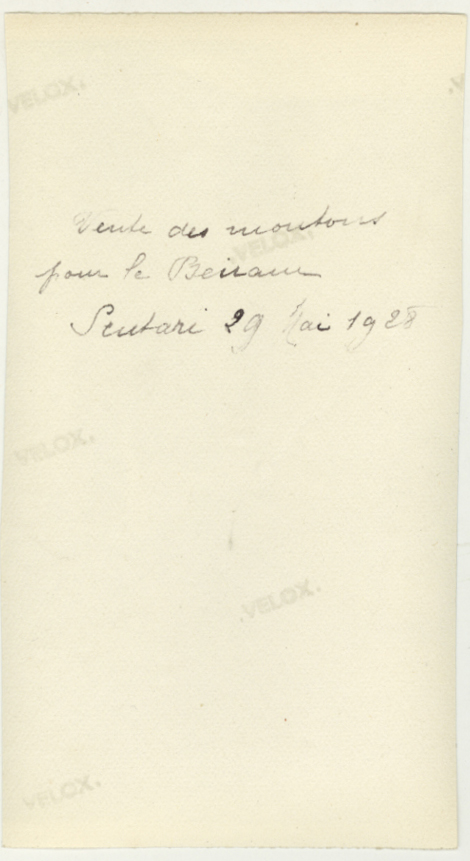 VELOX.
Vente des moutons
VELOX.
pour le Beiram
Scutari 29 Mai 1928
VELOX.
VELOX.
VELOX.